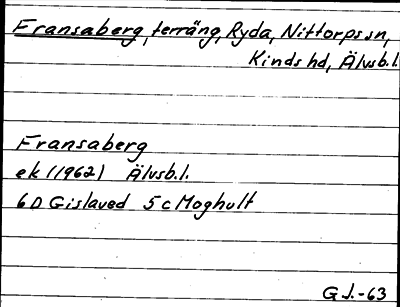 Fransaberg, terräng, Ryda, Nittorps sn,
Kinds hd, Älvsb.l.
Fransaberg
ek (1962) Älvsb.l.
6D Gislaved 5c Moghult
G.J.-63